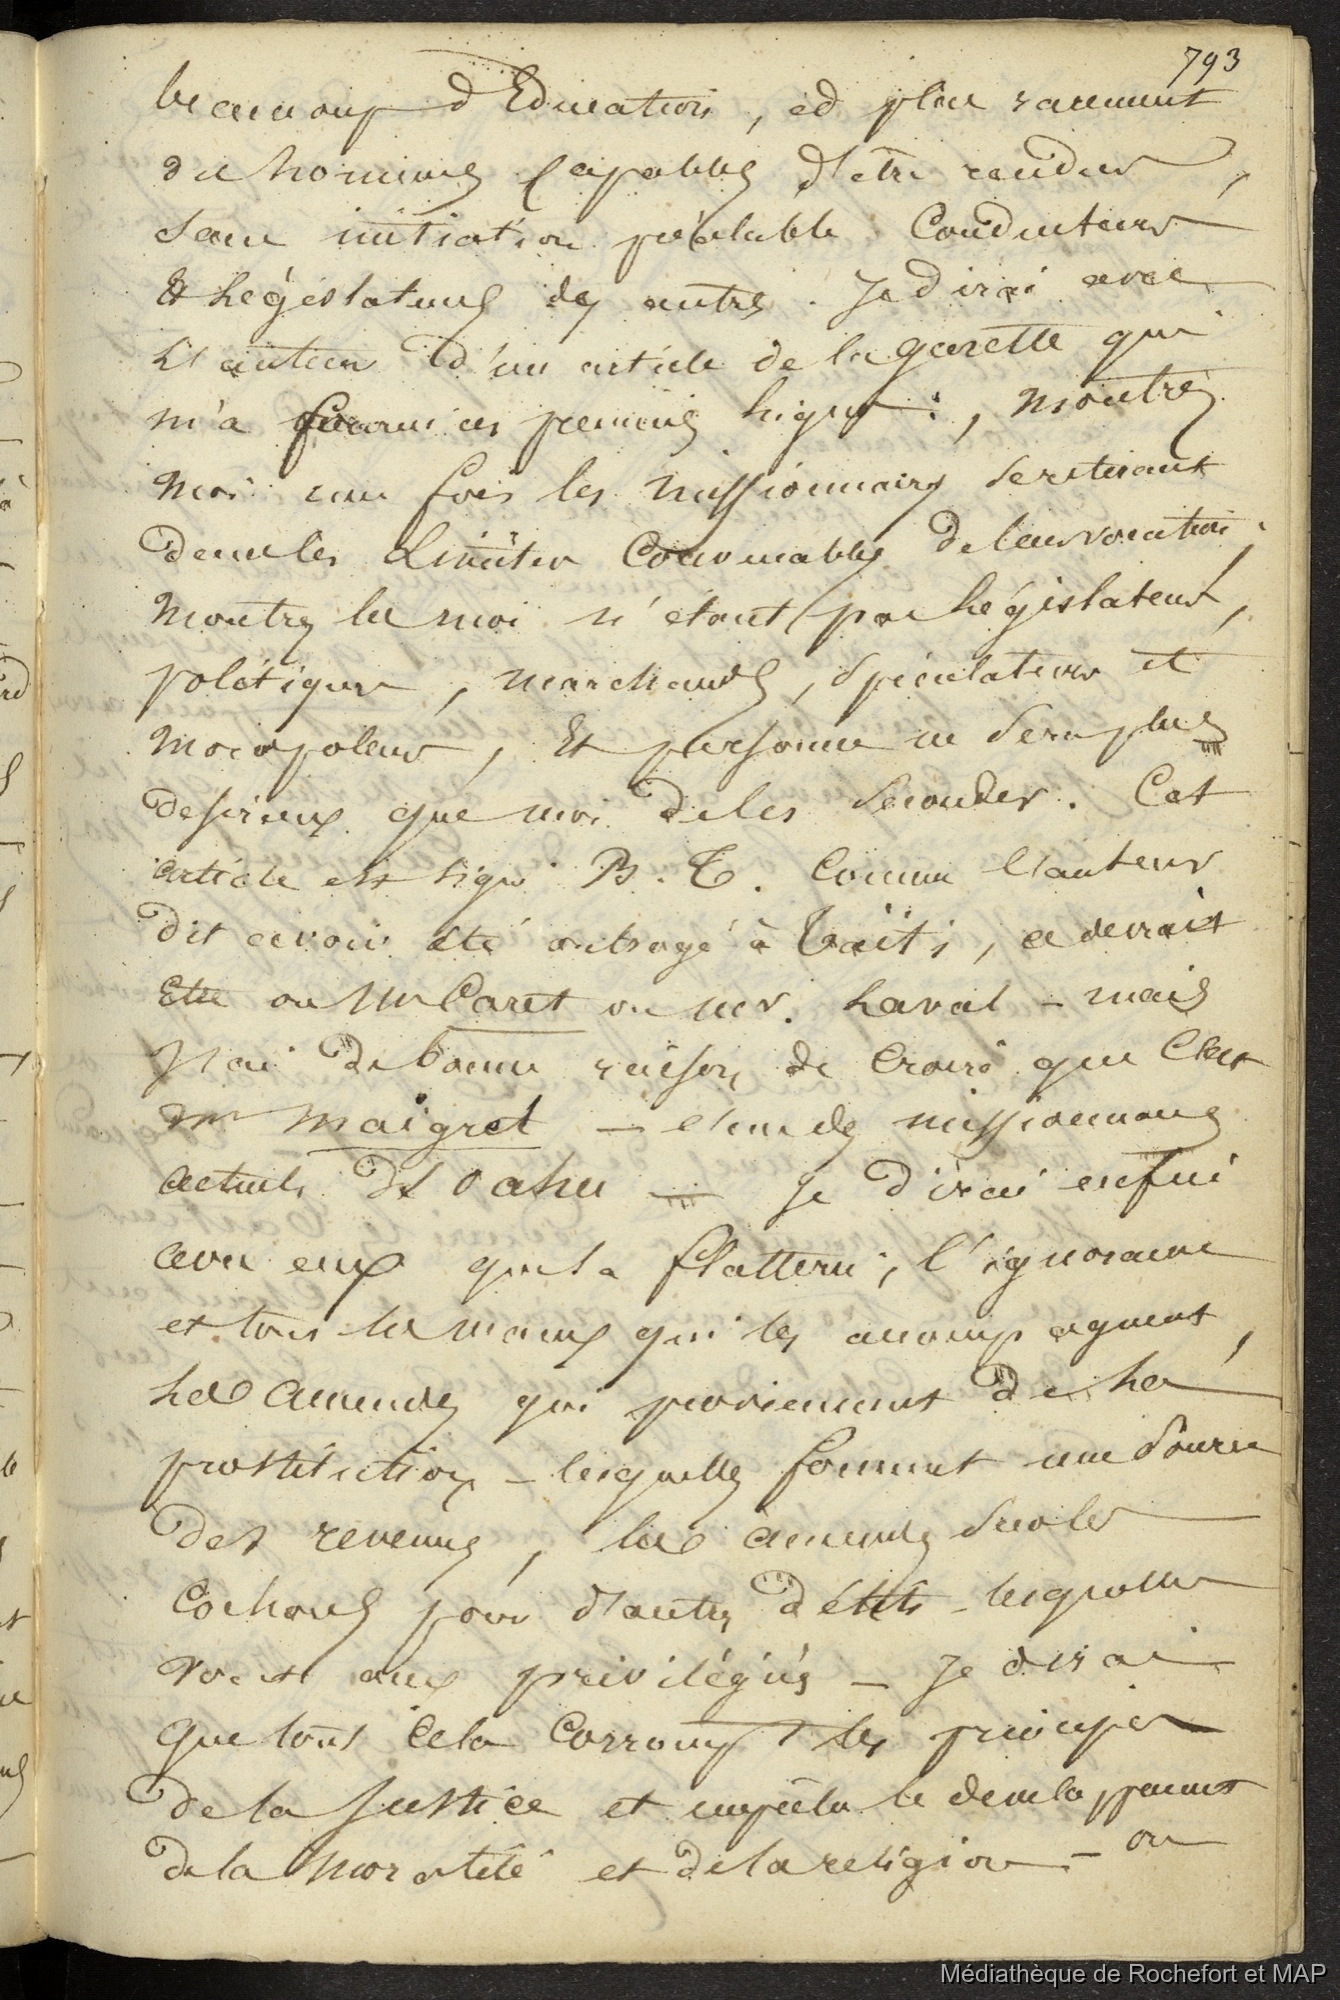 793
beaucoup d'Education, et plus rarement
des hommes Capables d'être rendus,
sans initiation préalable Conducteurs
Et Législateurs des autres. Je dirai avec
L'auteur d'un article de la gazette qui
m'a fourni ces premières lignes :, montrez
moi une fois les missionnaires se retirant
dans les Limites Convenables de leur vocation ;
montrez les moi n'étant pas Législateurs,
politiques, marchands, Spéculateurs et
monopoleurs, Et personne ne sera plus
desireux que moi de les Seconder. Cet
article est signé B. T. Comme l'auteur
dit avoir été outragé à Taïti, ce devrait
Etre ou Mr Caret ou Mr. Laval – mais
J'ai de bonne raison de Croire que C'est
Mr Maigret – l'un des missionnaires
actuels d'Oahu – Je dirai enfin
avec eux que la flatterie, l'ignorance
et tous les maux qui les accompagnent,
Les amendes qui proviennent de La
prostitution – lesquelles forment une source
des revenus, les amendes sur les
Cochons pour d'autres délits – lesquelles
vont aux privilégiés – Je dirai
que tout Cela Corrompt les principes
de la Justice et empêche le developpement
de la moralité et de la religion – on
Médiathèque de Rochefort et MAP